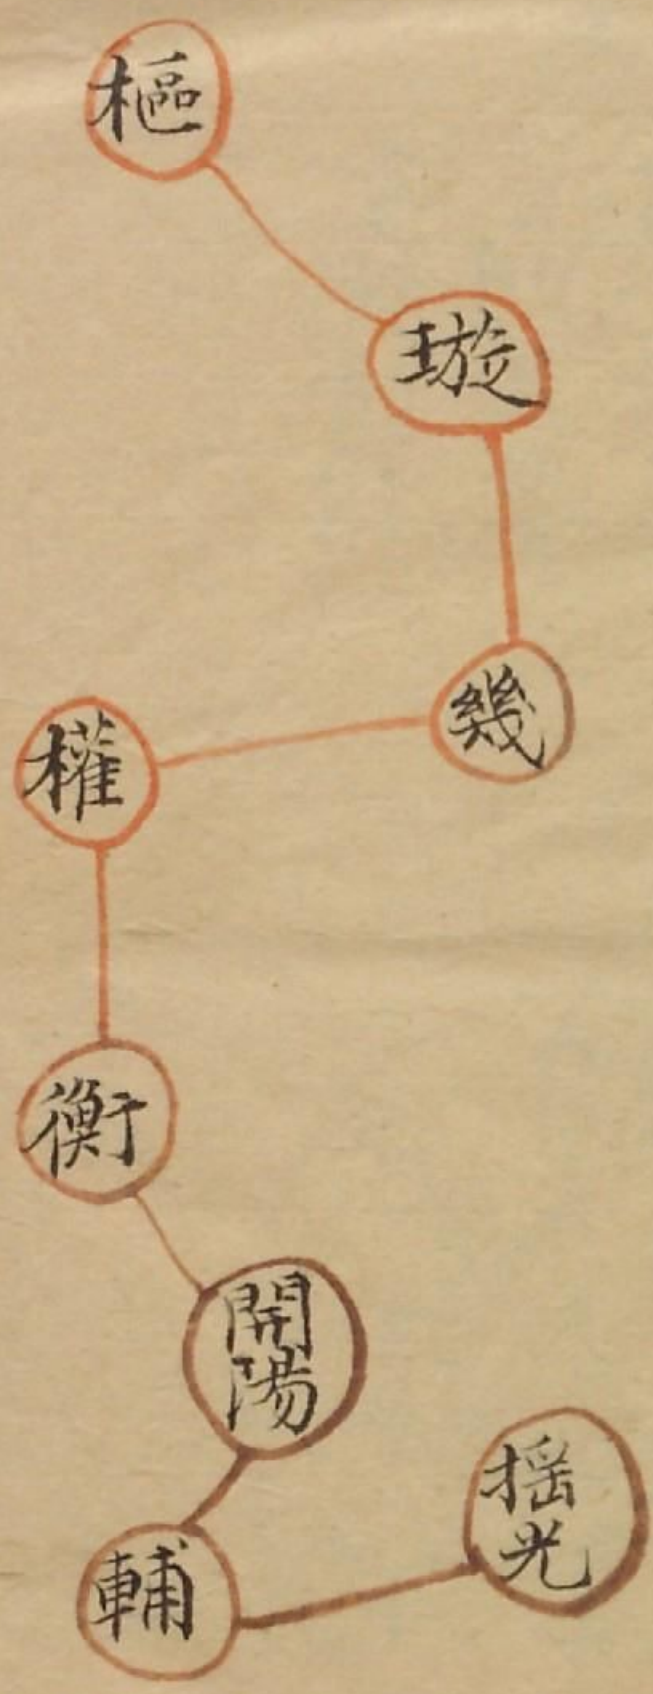 樞
璇
幾
權
衡
開
陽
輔
揺
光